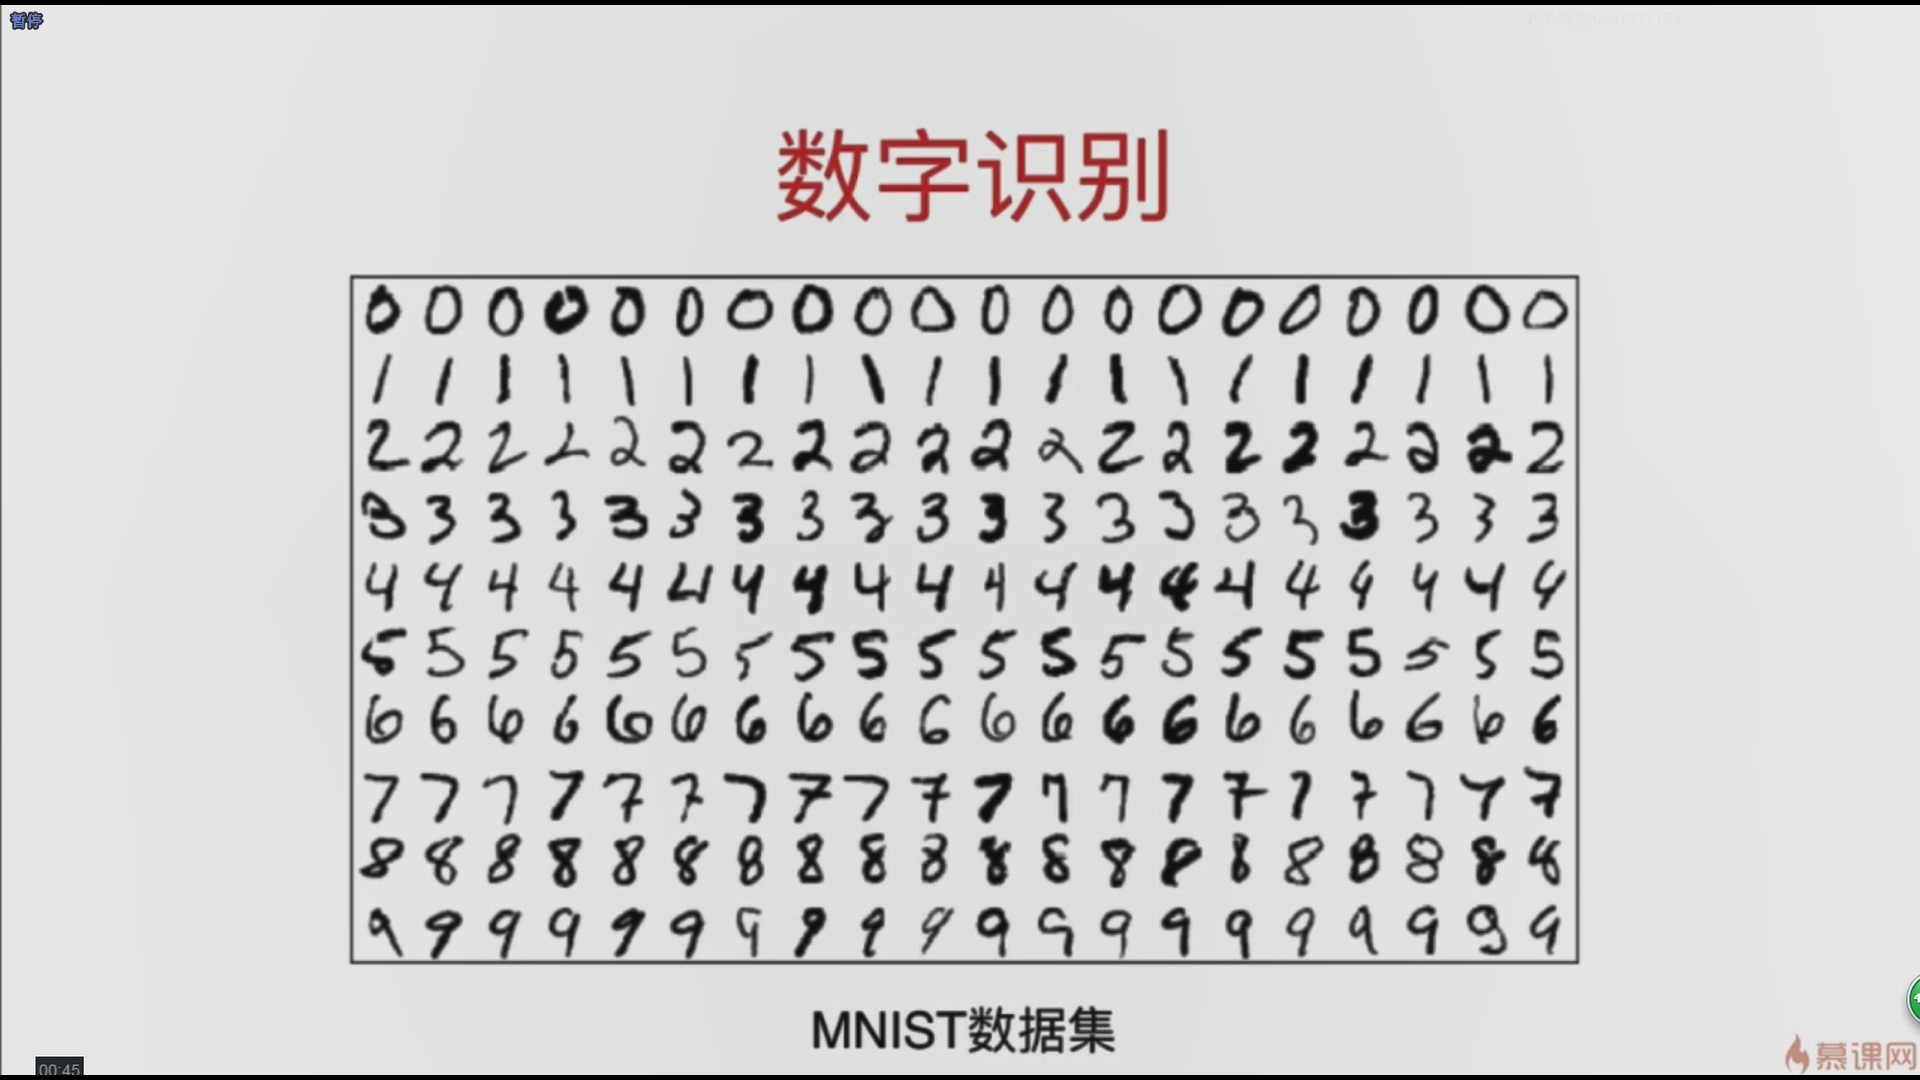 暂停
数字识别
0 0 0 0 0 0 0 0 0 0 0 0 0 0 0 0 0 0 0 0
1 1 1 1 1 1 1 1 1 1 1 1 1 1 1 1 1 1 1 1
2 2 2 2 2 2 2 2 2 2 2 2 2 2 2 2 2 2 2 2
3 3 3 3 3 3 3 3 3 3 3 3 3 3 3 3 3 3 3 3
4 4 4 4 4 4 4 4 4 4 4 4 4 4 4 4 4 4 4 4
5 5 5 5 5 5 5 5 5 5 5 5 5 5 5 5 5 5 5 5
6 6 6 6 6 6 6 6 6 6 6 6 6 6 6 6 6 6 6 6
7 7 7 7 7 7 7 7 7 7 7 7 7 7 7 7 7 7 7 7
8 8 8 8 8 8 8 8 8 8 8 8 8 8 8 8 8 8 8 8
9 9 9 9 9 9 9 9 9 9 9 9 9 9 9 9 9 9 9 9
MNIST数据集
慕课网
00:45